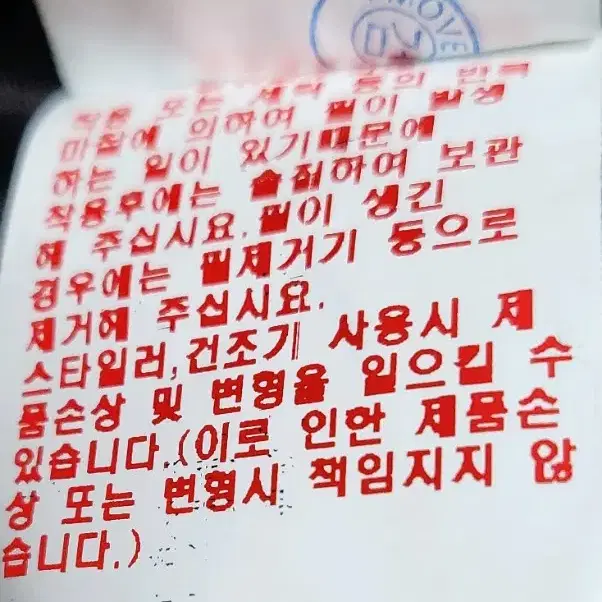 MOVE
착용 또는 세탁 등의 반복
마찰에 의하여 필이 발생
하는 일이 있기때문에
착용후에는 솔질하여 보관
해 주십시요.필이 생긴
경우에는 필제거기 등으로
제거해 주십시요.
스타일러,건조기 사용시 제
품손상 및 변형을 일으킬 수
있습니다.(이로 인한 제품손
상 또는 변형시 책임지지 않
습니다.)